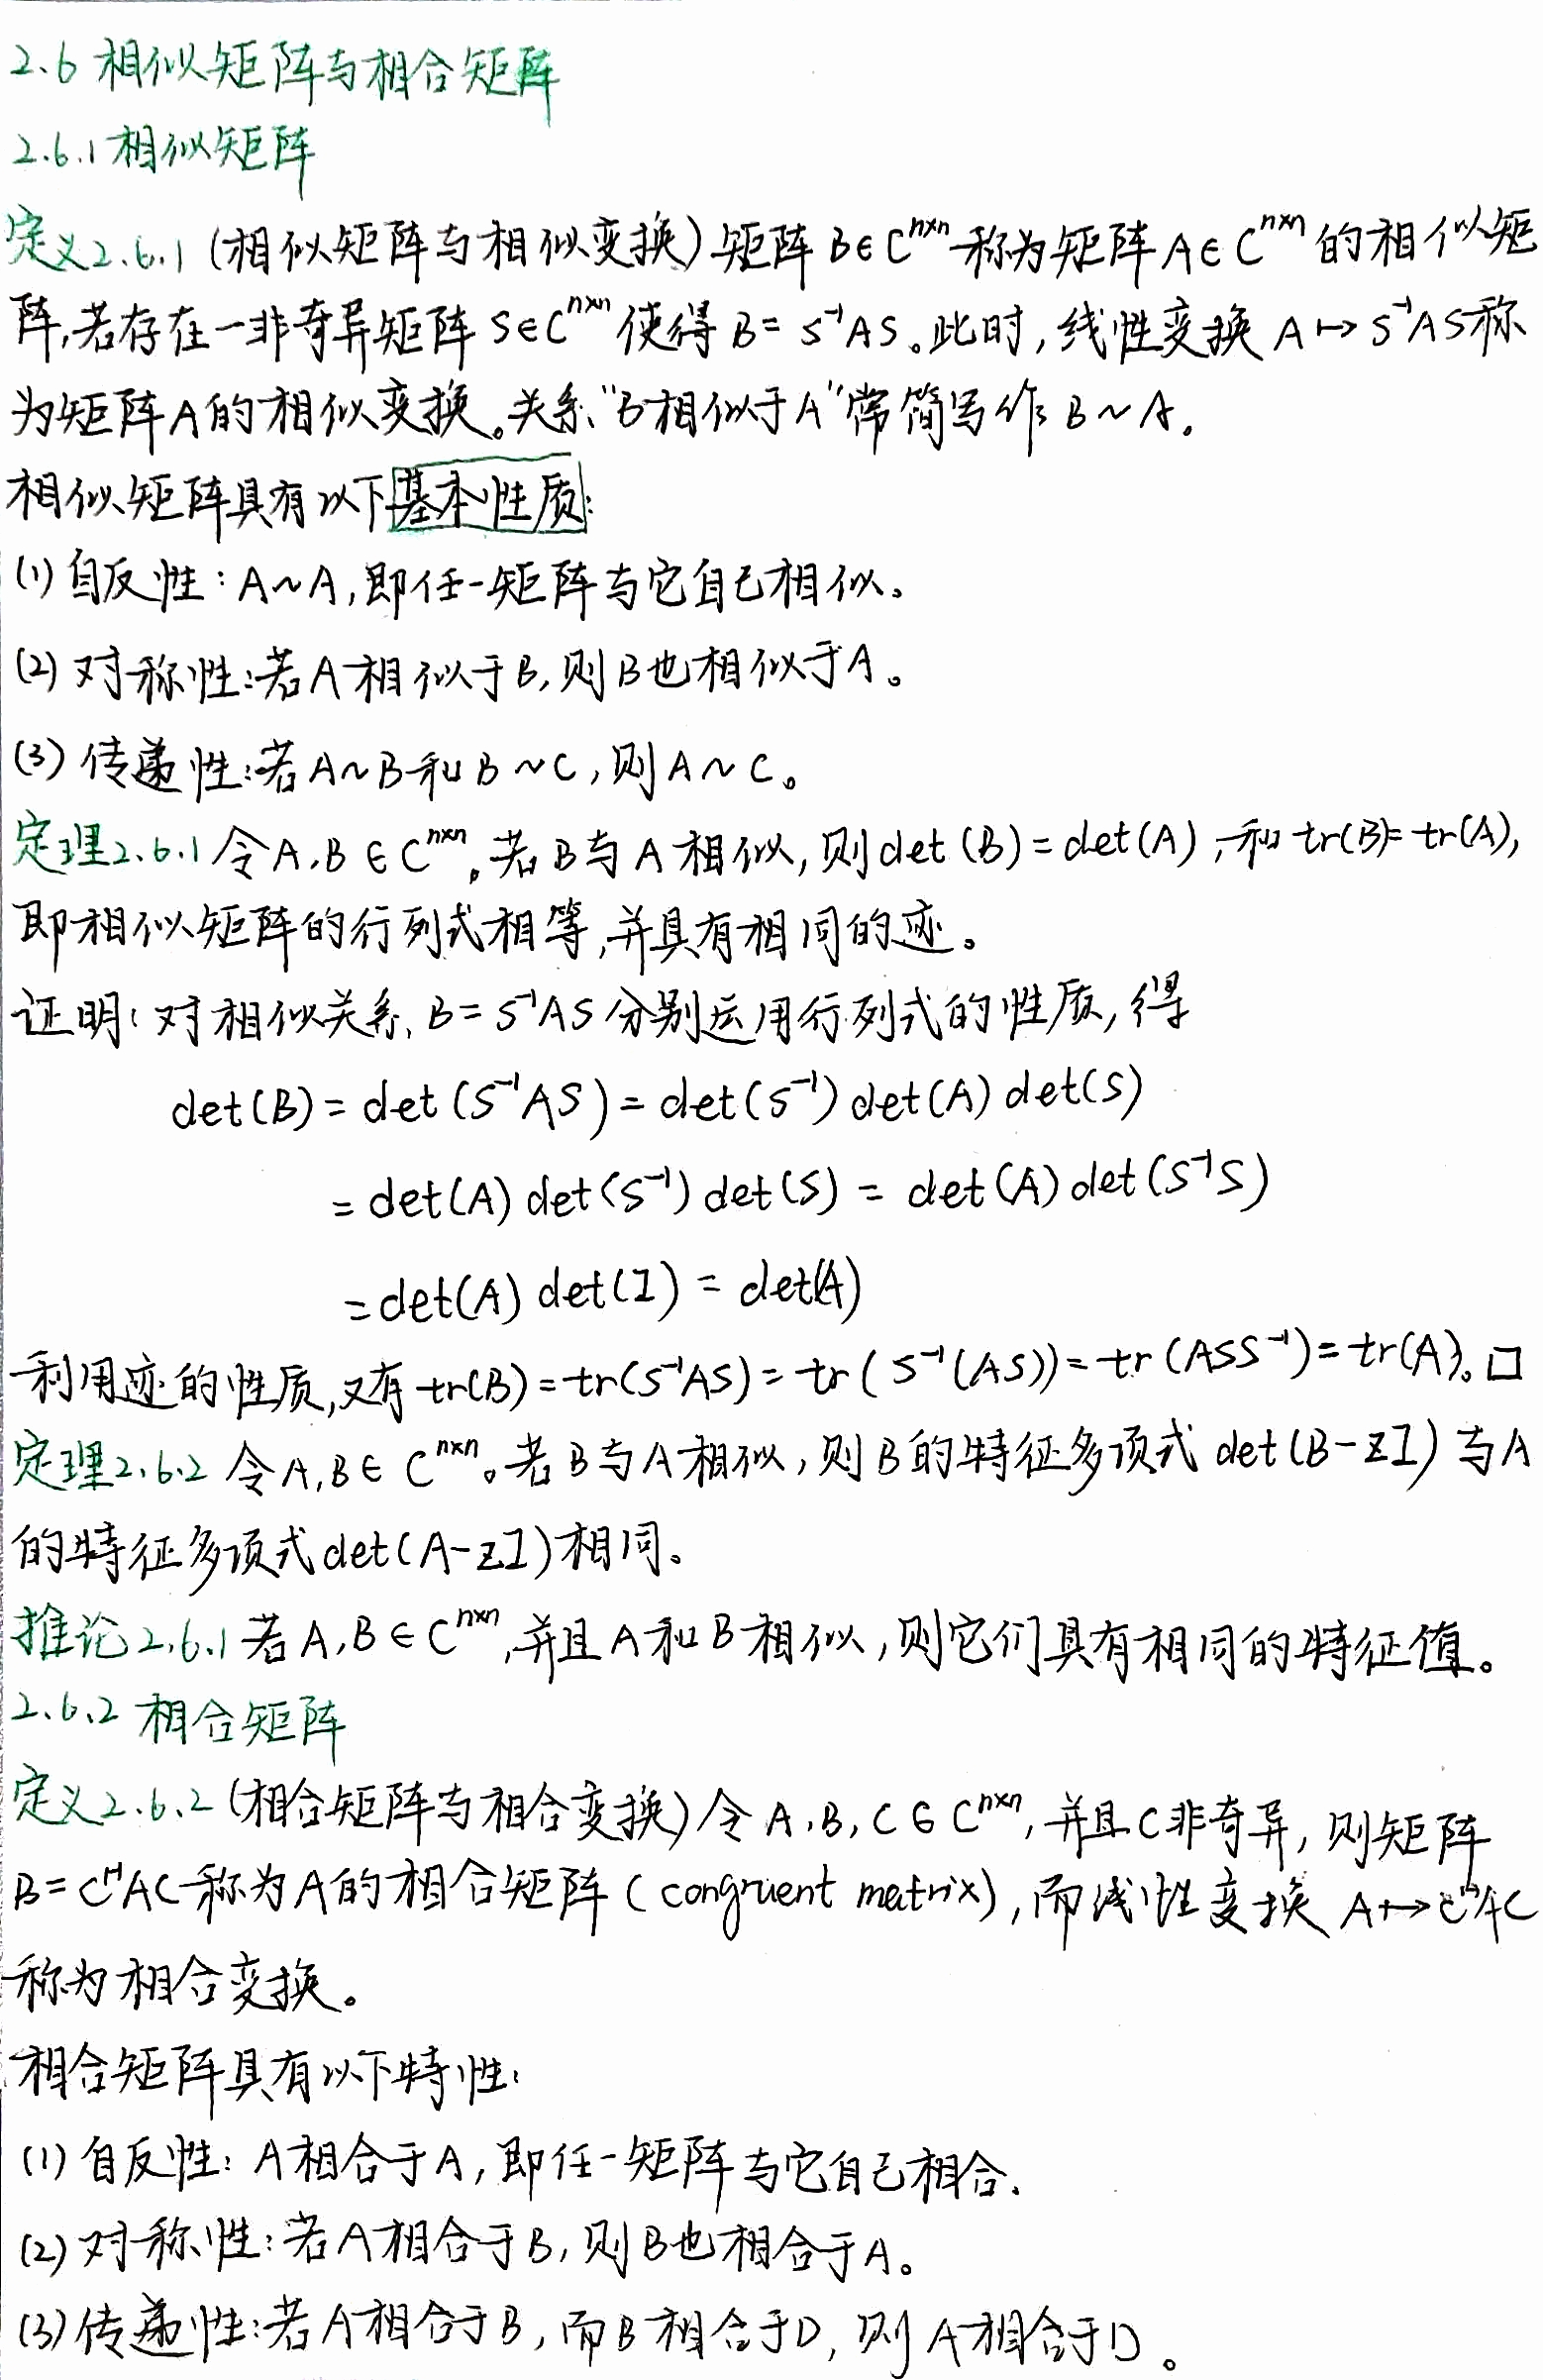 2.6 相似矩阵与相合矩阵
2.6.1 相似矩阵
定义2.6.1 (相似矩阵与相似变换) 矩阵 B∈Cⁿˣⁿ 称为矩阵 A∈Cⁿˣⁿ 的相似矩
阵,若存在一非奇异矩阵 S∈Cⁿˣⁿ 使得 B = S⁻¹AS。此时,线性变换 A↦S⁻¹AS称
为矩阵A的相似变换。关系“B相似于A”常简写作 B~A.
相似矩阵具有以下基本性质:
(1) 自反性:A~A,即任一矩阵与它自己相似。
(2) 对称性:若A相似于B,则B也相似于A。
(3) 传递性:若A~B和B~C,则A~C。
定理2.6.1 令A,B∈Cⁿˣⁿ。若B与A相似,则det(B)=det(A),和tr(B)=tr(A),
即相似矩阵的行列式相等,并具有相同的迹。
证明:对相似关系,B=S⁻¹AS分别运用行列式的性质,得
det(B)=det(S⁻¹AS)=det(S⁻¹)det(A)det(S)
=det(A)det(S⁻¹)det(S)=det(A)det(S⁻¹S)
=det(A)det(I)=det(A)
利用迹的性质,又有tr(B)=tr(S⁻¹AS)=tr(S⁻¹(AS))=tr(ASS⁻¹)=tr(A)。□
定理2.6.2 令A,B∈Cⁿˣⁿ。若B与A相似,则B的特征多项式det(B-zI)与A
的特征多项式det(A-zI)相同。
推论2.6.1 若A,B∈Cⁿˣⁿ,并且A和B相似,则它们具有相同的特征值。
2.6.2 相合矩阵
定义2.6.2 (相合矩阵与相合变换)令A,B,C∈Cⁿˣⁿ,并且C非奇异,则矩阵
B=CᴴAC称为A的相合矩阵(congruent matrix),而线性变换 A↦CᴴAC
称为相合变换。
相合矩阵具有以下特性:
(1) 自反性:A相合于A,即任一矩阵与它自己相合.
(2) 对称性:若A相合于B,则B也相合于A。
(3) 传递性:若A相合于B,而B相合于D,则A相合于D。